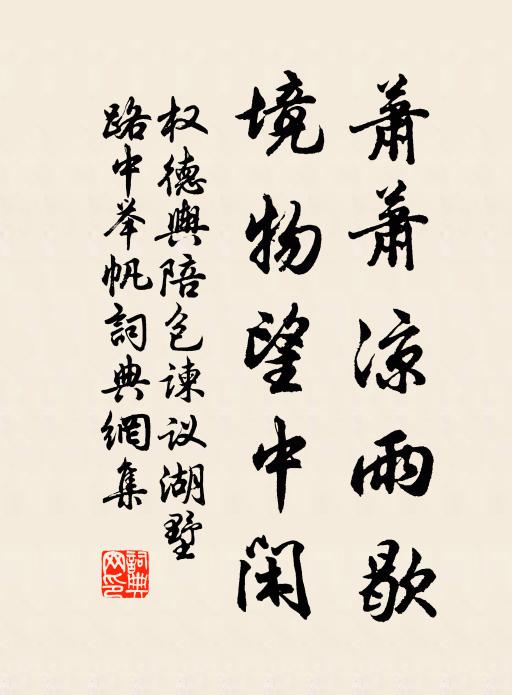 萧萧凉雨歇
境物望中闲
权德舆陪包谏议湖墅
路中举帆詞典網集
詞典网印